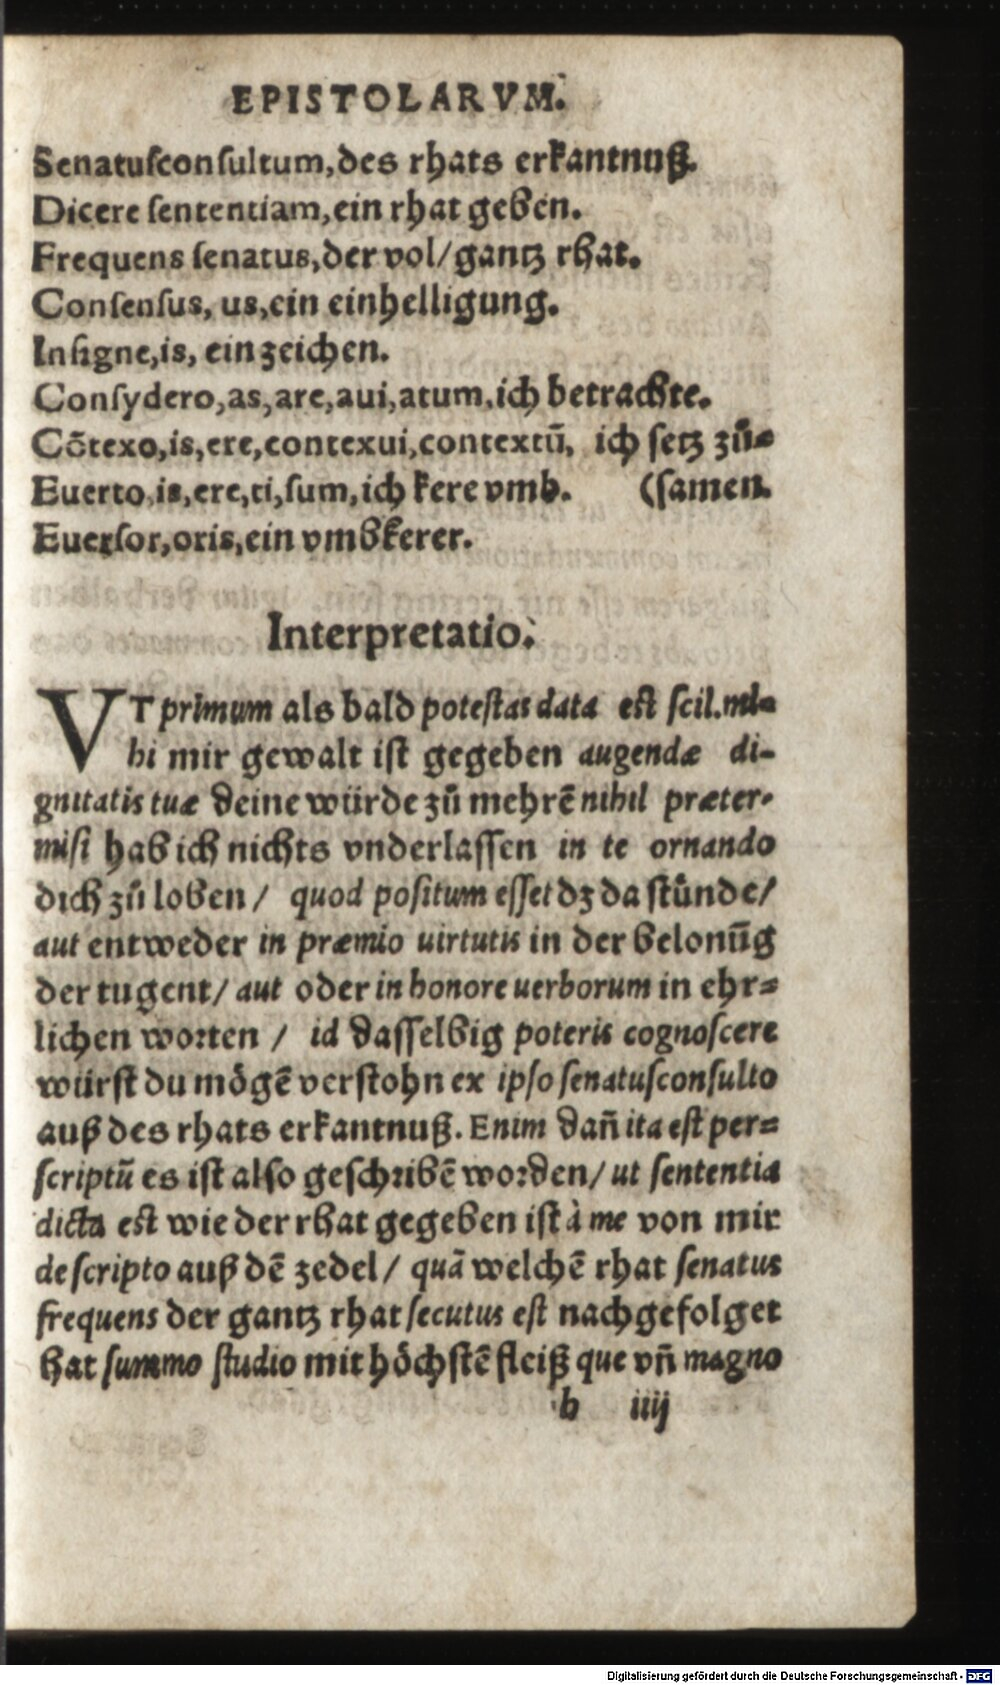 EPISTOLARVM.
Senatusconsultum, des rhats erkantnuß.
Dicere sententiam, ein rhat geben.
Frequens senatus, der vol/gantz rhat.
Consensus, us, ein einhelligung.
Insigne, is, ein zeichen.
Consydero, as, are, aui, atum, ich betrachte.
Cōtexo, is, ere, contexui, contextū, ich setz zů=
Euerto, is, ere, ti, sum, ich kere vmb. (samen.
Euersor, oris, ein vmbkerer.
Interpretatio.
VT primum als bald potestas data est scil. mi=
hi mir gewalt ist gegeben augendæ di-
gnitatis tuæ deine würde zů mehrē nihil præter-
misi hab ich nichts vnderlassen in te ornando
dich zů loben / quod positum esset dz da stůnde/
aut entweder in præmio uirtutis in der belonūg
der tugent/ aut oder in honore uerborum in ehr=
lichen worten / id dasselbig poteris cognoscere
würst du mögē verstohn ex ipso senatusconsulto
auß des rhats erkantnuß. Enim dañ ita est per=
scriptū es ist also geschribē worden/ ut sententia
dicta est wie der rhat gegeben ist à me von mir
de scripto auß dē zedel / quā welchē rhat senatus
frequens der gantz rhat secutus est nachgefolget
hat summo studio mit höchstē fleiß que vñ magno
b iiij
Digitalisierung gefördert durch die Deutsche Forschungsgemeinschaft - DFG